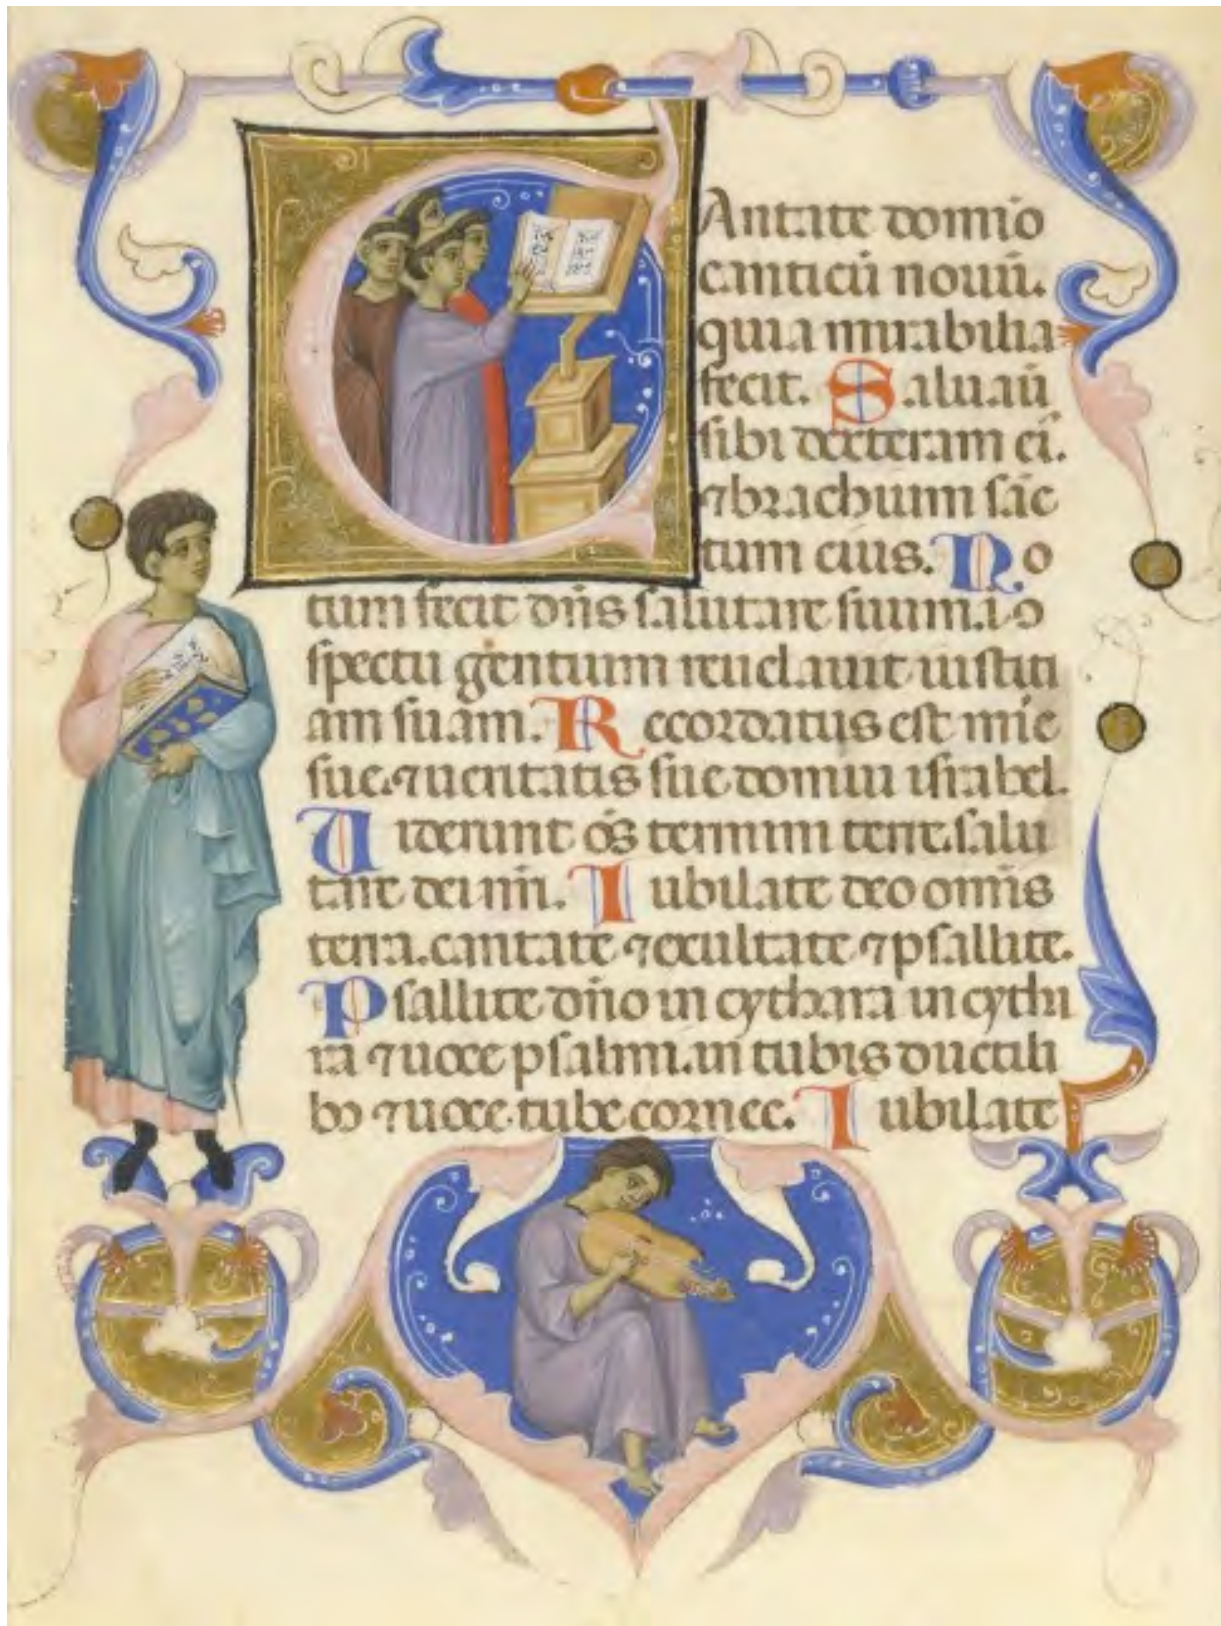 CAntate domīo
canticū nouū.
quia mirabilia
fecit. Saluauī
sibi dextera eī.
⁊ brachium sāc
tum eius. No
tum fecit dn̄s salutare suum. i ɔ
spectu gentium reuelauit iustiti
am suam. Recordatus est mīe
sue. ⁊ ueritatis sue domui israhel.
Uiderunt oēs termini terre. salu
tare dei nr̄i. Iubilate deo omīs
terra. cantate ⁊ exultate ⁊ psallite.
Psallite dn̄o in cythara in cytha
ra ⁊ uoce psalmi. in tubis ductili
bꝰ ⁊ uoce tube cornee. Iubilate